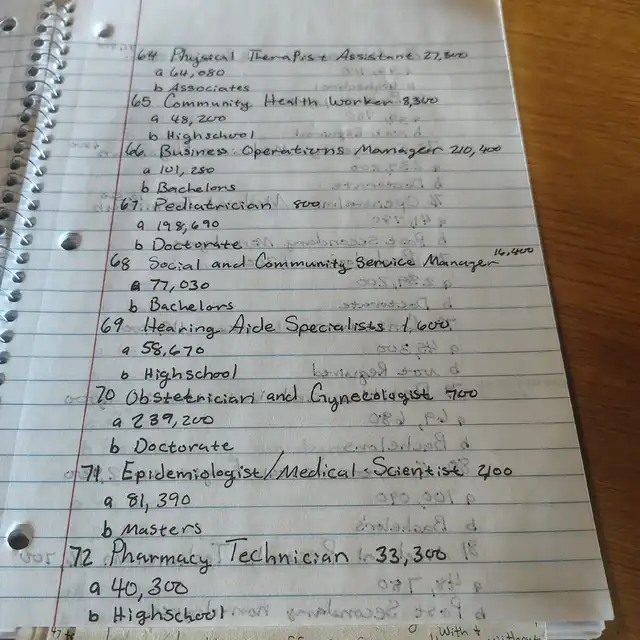 64 Physical Therapist Assistant 27,800
a 64,080
b Associates
65 Community Health Worker 8,300
a 48,200
b Highschool
66 Business Operations Manager 210,400
a 101,280
b Bachelors
67 Pediatrician 800
a 198,690
b Doctorate
68 Social and Community Service Manager 16,400
a 77,030
b Bachelors
69 Hearing Aide Specialists 1,600
a 58,670
b Highschool
70 Obstetrician and Gynecologist 700
a 239,200
b Doctorate
71 Epidemiologist/Medical Scientist 200
a 81,390
b Masters
72 Pharmacy Technician 33,300
a 40,300
b Highschool
With